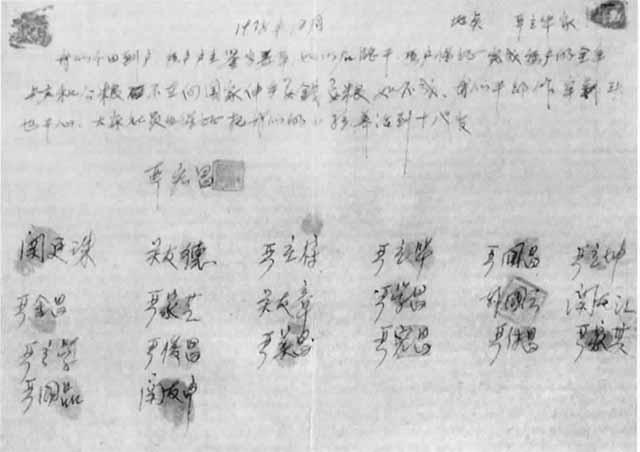 1978年12月 地点 严立华家
我们分田到户 每户户主签字盖章 如以后能干 每户保证完成每户的全年
上交和公粮 不在向国家伸手要钱要粮 如不成 我们干部作牢刹头
也干心 大家社员也保证把我们的小孩养活到十八岁
严宏昌
関廷珠 关友德 严立符 严立华 严国昌 严立坤
严金昌 严家芝 关友章 严学昌 韩国云 関友江
严立学 严俊昌 严美昌 严宏昌 严付昌 严家其
严国品 関友申